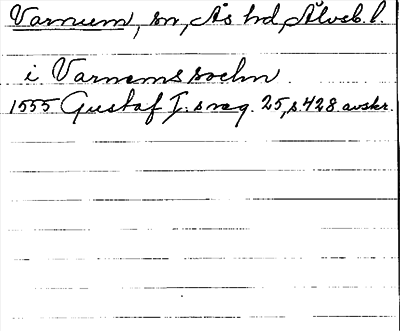 Varnum, sn, Ås hd, Älvsb. l.
i Varnems sochn
1555 Gustaf I:s reg. 25, s. 428 avskr.